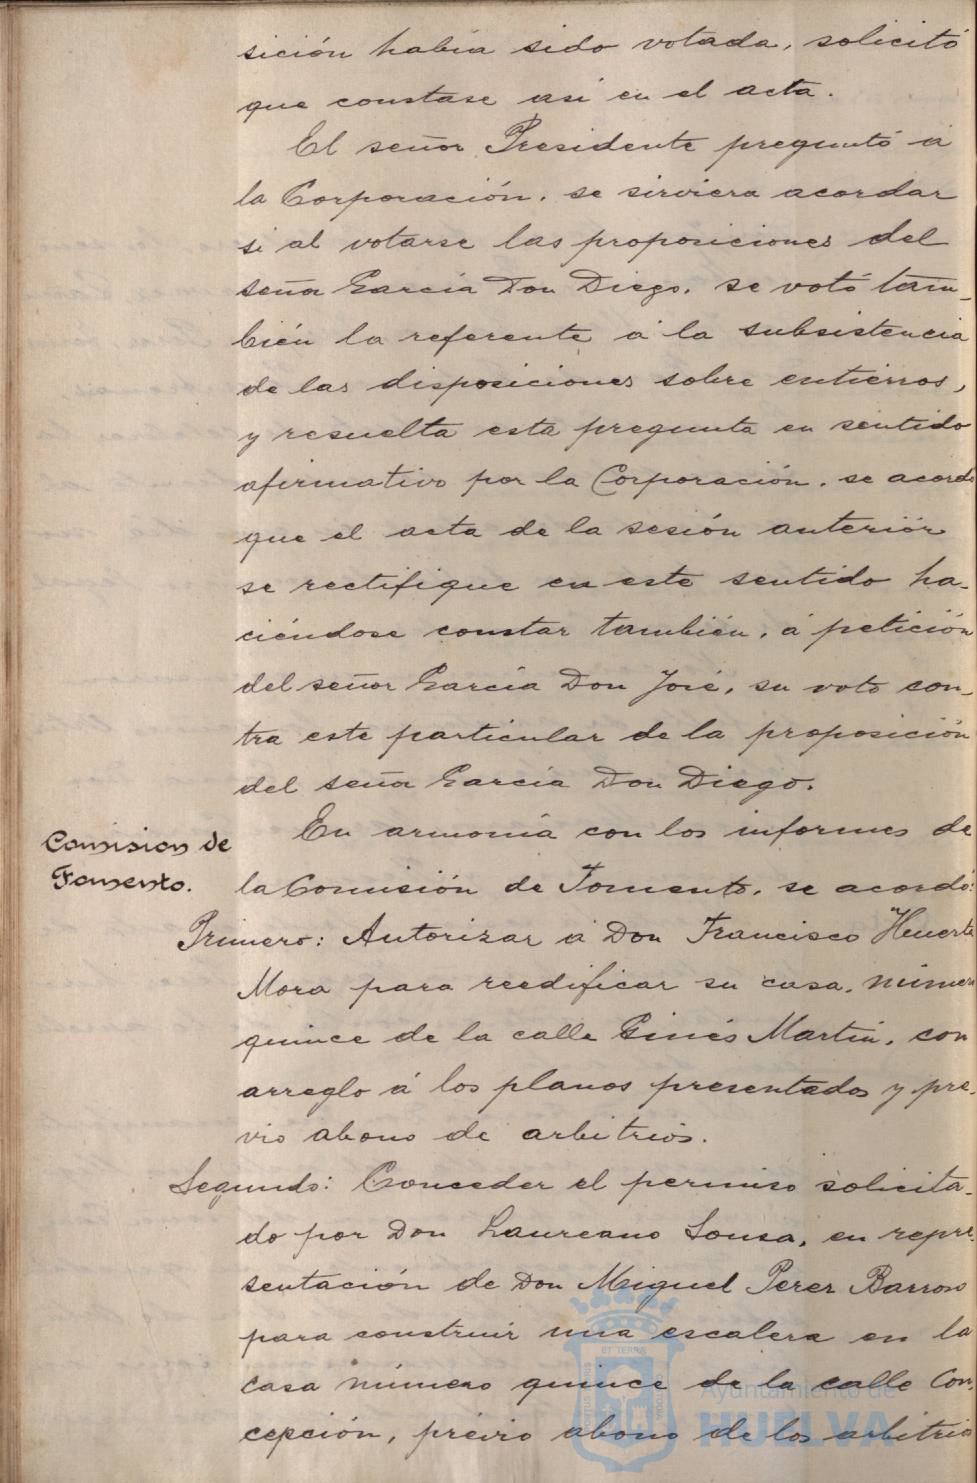 sición había sido votada, solicitó
que constase así en el acta.
El señor Presidente preguntó á
la Corporación, se sirviera acordar
si al votarse las proposiciones del
señor García Don Diego, se votó tam-
bién la referente á la subsistencia
de las disposiciones sobre entierros,
y resuelta esta pregunta en sentido
afirmativo por la Corporación, se acordó
que el acta de la sesión anterior
se rectifique en este sentido ha-
ciéndose constar también, á petición
del señor García Don José, su voto con-
tra este particular de la proposición
del señor García Don Diego.
Comision de
Fomento.
En armonía con los informes de
la Comisión de Fomento, se acordó:
Primero: Autorizar á Don Francisco Huerta
Mora para reedificar su casa, número
quince de la calle Ginés Martín, con
arreglo á los planos presentados y pre-
vio abono de arbitrios.
Segundo: Conceder el permiso solicita-
do por Don Laureano Sousa, en repre-
sentación de Don Miguel Perez Barroso
para construir una escalera en la
casa número quince de la calle Con-
cepción, previo abono de los arbitrios
Ayuntamiento de
HUELVA